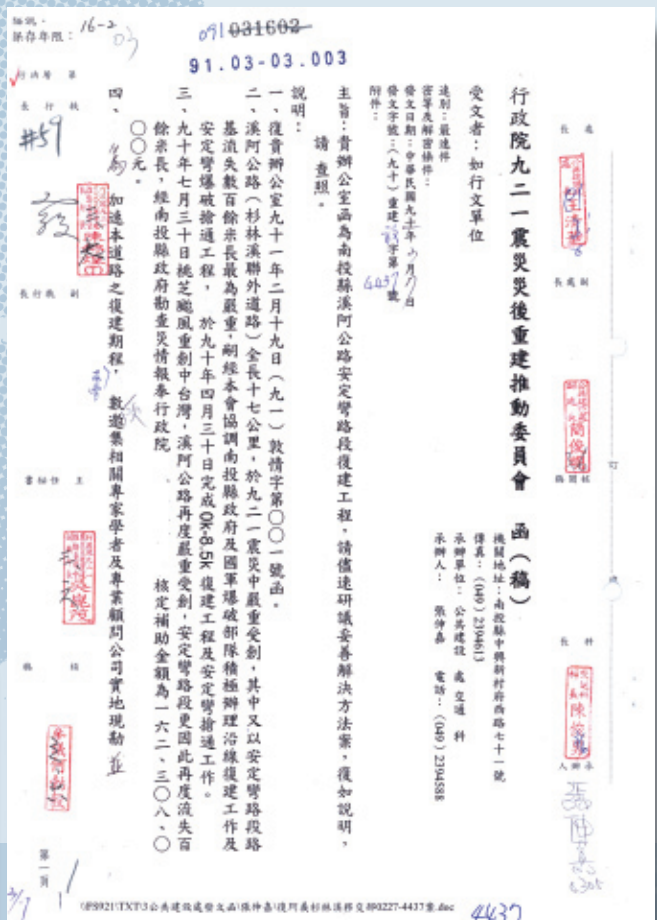 編號：
保存年限：
16-2
03
091031602
91.03-03.003
行政院九二一震災災後重建推動委員會 函（稿）
機關地址：南投縣中興新村府西路七十一號
傳真：（049）2394613
承辦單位：公共建設 處 交通 科
承辦人： 張仲嘉 電話：（049）2394588
受文者：如行文單位
速別：最速件
密等及解密條件：
發文日期：中華民國九十一年 月 日
發文字號：（九十）重建 字第 4437 號
附件：
主旨：貴辦公室函為南投縣溪阿公路安定彎路段復建工程，請儘速研議妥善解決方法案，復如說明，
請 查照。
說明：
一、復貴辦公室九十一年二月十九日（九一）敦情字第〇〇一號函。
二、溪阿公路（杉林溪聯外道路）全長十七公里，於九二一震災中嚴重受創，其中又以安定彎路段路
基流失數百餘米長最為嚴重，嗣經本會協調南投縣政府及國軍爆破部隊積極辦理沿線復建工作及
安定彎爆破搶通工程， 於九十年四月三十日完成0k-8.5k 復建工程及安定彎搶通工作。
三、九十年七月三十日桃芝颱風重創中台灣，溪阿公路再度嚴重受創，安定彎路段更因此再度流失百
餘米長，經南投縣政府勘查災情報奉行政院 核定補助金額為一六二、三〇八、〇
〇〇元。
四、為加速本道路之復建期程， 敦邀集相關專家學者及專業顧問公司實地現勘 並
處 長
副處長
科 長
承辦人
執行長
副執行長
主任秘書
核 稿
第一頁
\PS921\TXT\3公共建設處發文函\張仲嘉\復阿義杉林溪移交部0227-4437案.doc
4437